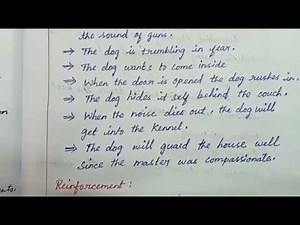 the sound of guns.
→ The dog is trembling in fear.
→ The dog wants to come inside
→ When the door is opened the dog rushes in.
→ The dog hides it self behind the couch.
→ When the noise dies out, the dog will
get into the Kennel.
→ The dog will guard the house well
since the master was compassionate.
Reinforcement :